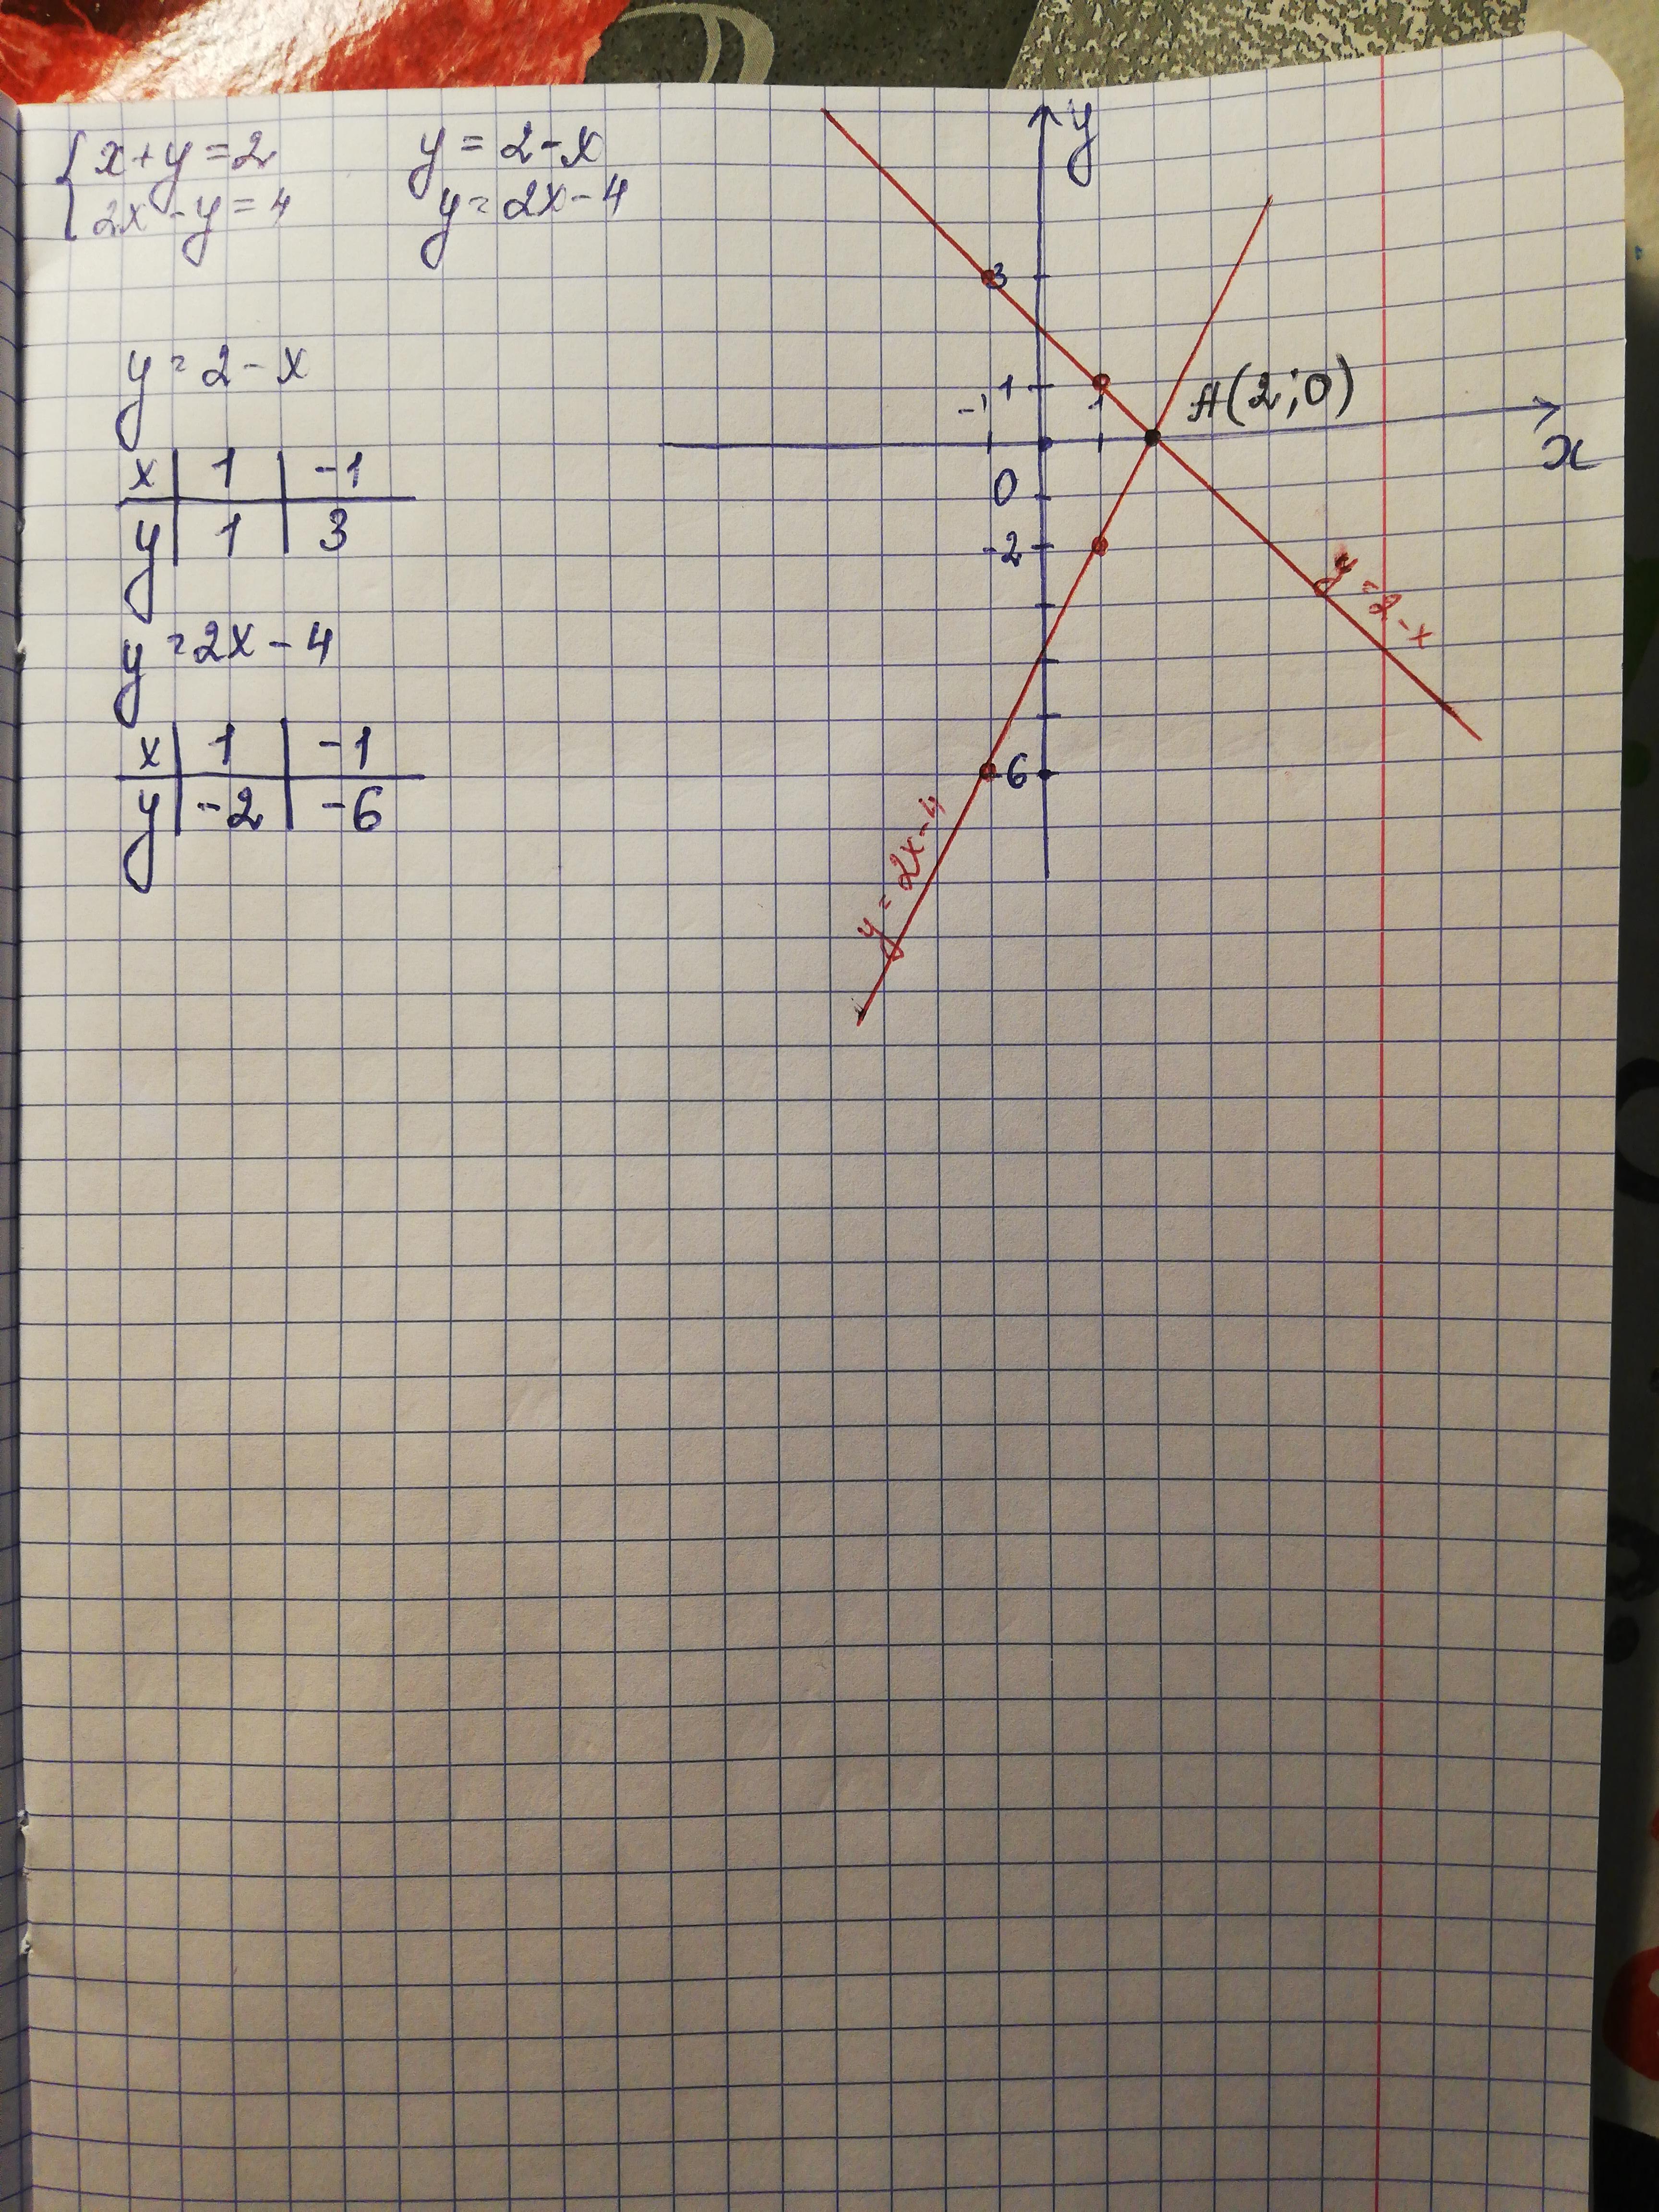 { x + y = 2
2x - y = 4
y = 2 - x
y = 2x - 4
y = 2 - x
x | 1 | -1
y | 1 | 3
y = 2x - 4
x | 1 | -1
y | -2 | -6
y
3
1
-1
1
A(2;0)
x
0
-2
-6
y = 2 - x
y = 2x - 4